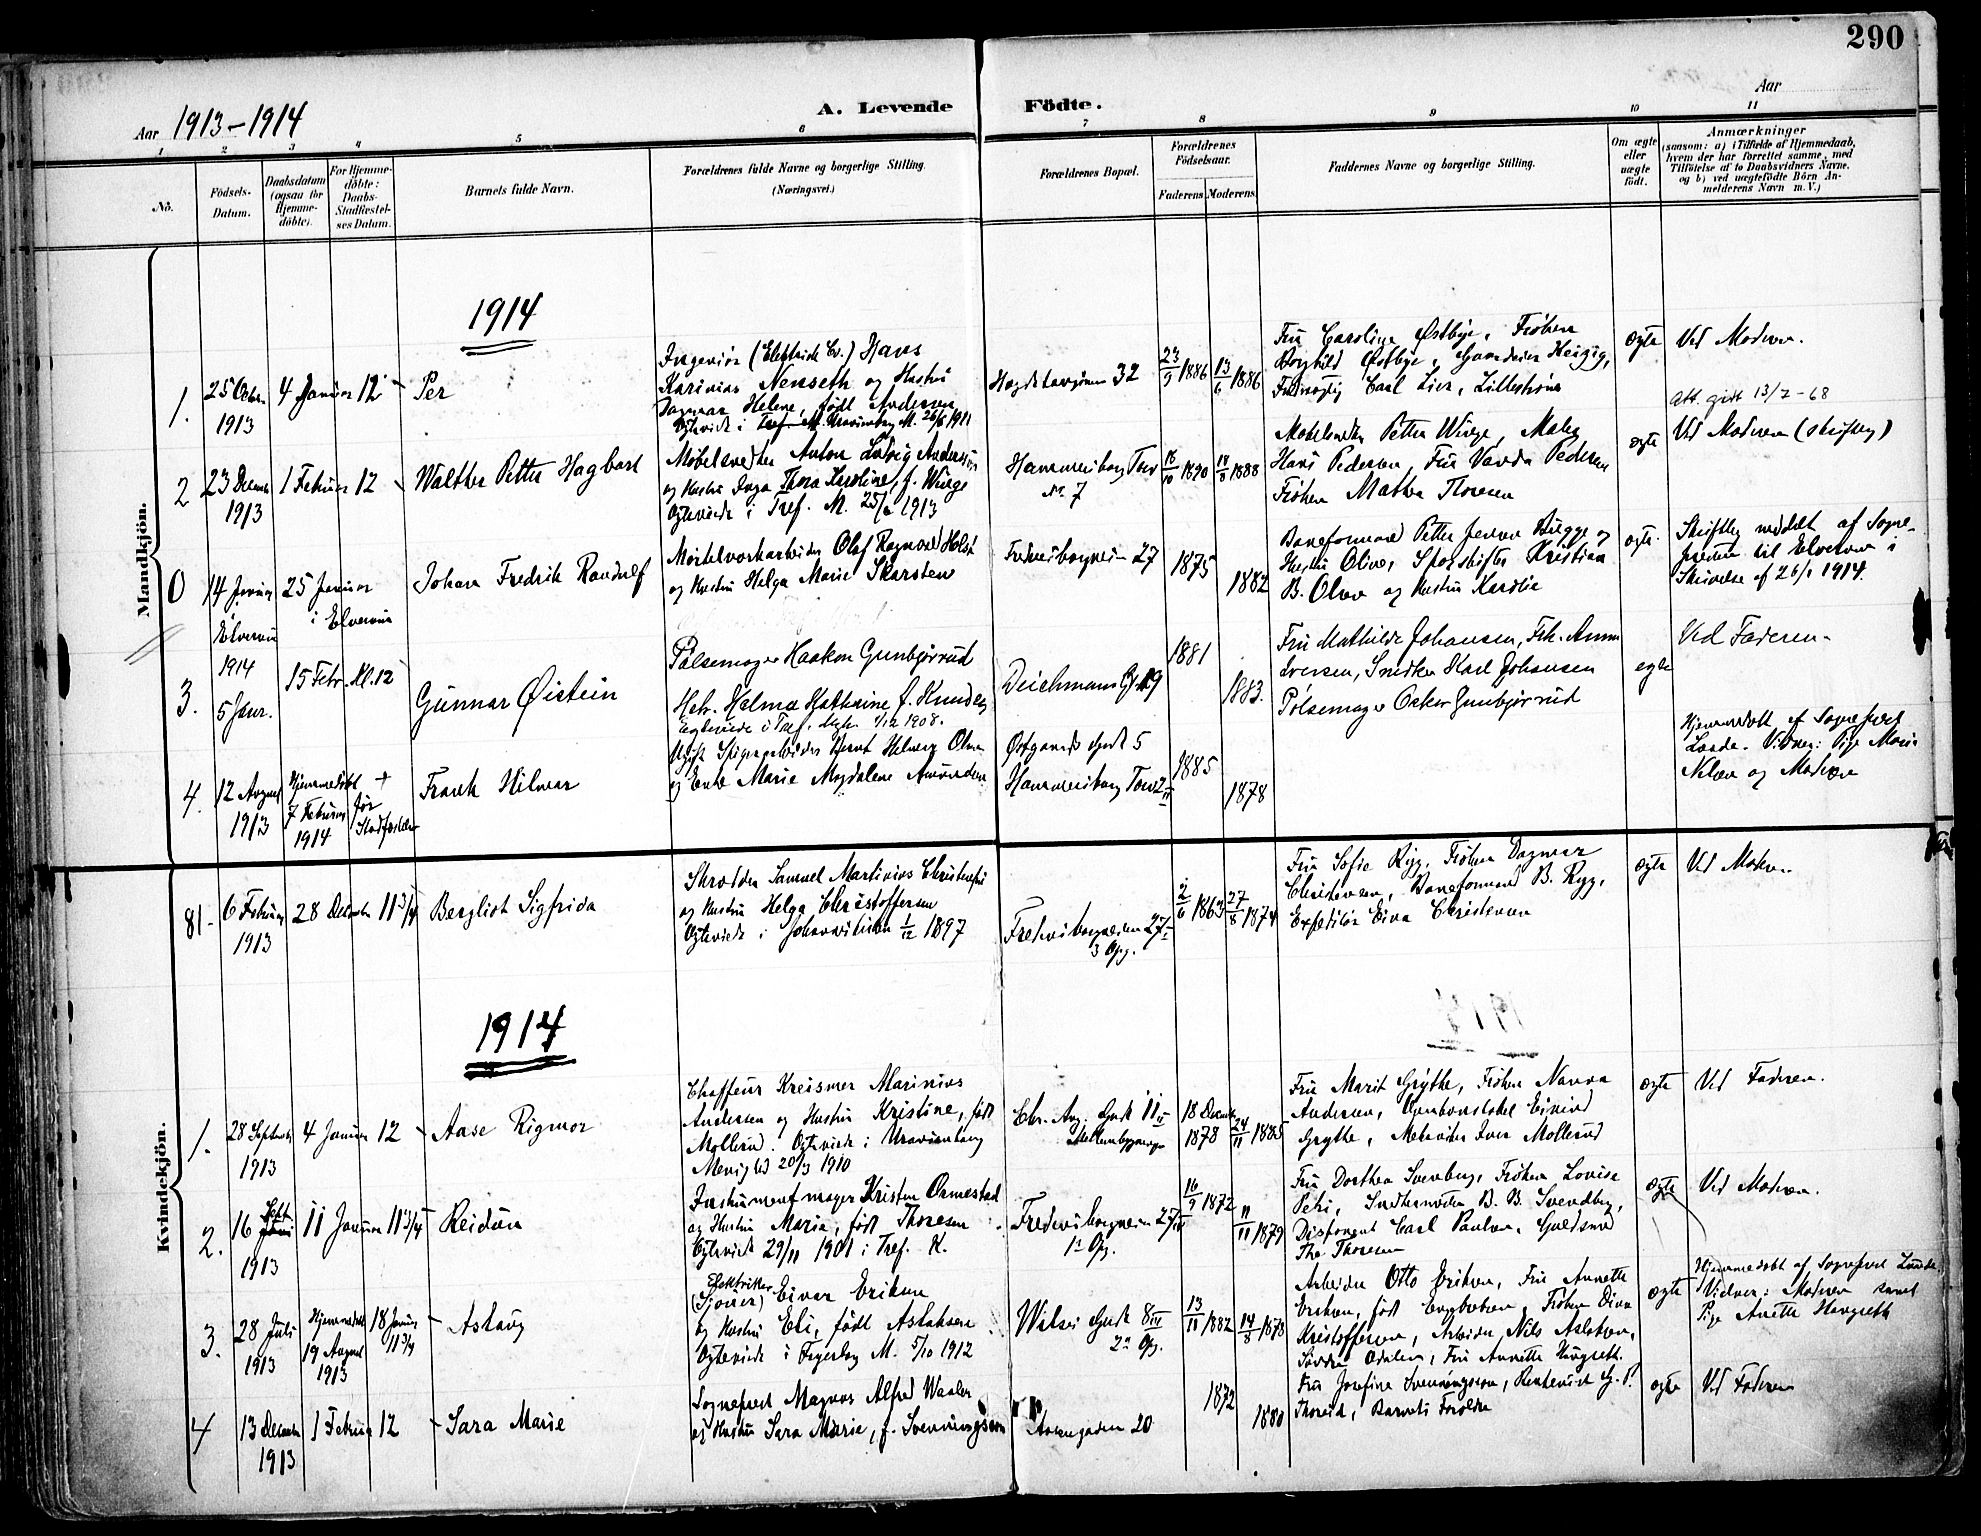 290
Aar 1913-1914
A. Levende Födte.
Aar
1 2 3 4 5 6 7 8 9 10 11
No.
Födsels-Datum.
Daabsdatum (ogsaa for Hjemmedöbte).
For Hjemmedöbte: Daabs-Stadfæstelses Datum.
Barnets fulde Navn.
Forældrenes fulde Navne og borgerlige Stilling. (Næringsvei.)
Forældrenes Bopæl.
Forældrenes Födselsaar.
Faderens Moderens
Faddernes Navne og borgerlige Stilling.
Om ægte eller uægte født.
Anmærkninger
(saasom: a) i Tilfælde af Hjemmedaab,
hvem der har forrettet samme, med
Tilföielse af to Daabsvidners Navne,
og b) ved uægtefödte Börn An-
melderens Navn m. V.)
Mandkjön.
1914
1. 25 Octbr. 1913
4 Januar 12
Per
Ingeniør (Elektrisk Bv.) Hans
Karinius Nenseth og Hustru
Dagmar Helene, født Andersen
Ægteviet i Uranienborg M. 26/8 1911
Hegdehaugsveien 32
23/9 1886
13/6 1886
Fru Caroline Østbye, Frøken
Borghild Østbye,
Carl Lier, Lillestrøm
ægte
Ved Moderen.
Att. gift 13/7-68
2 23 Decemb 1913
1 Februar 12
Walther Petter Hagbart
Møbelsnedker Anton Ludvig Andersen
og Hustru Inga Thora Karoline, f. Winge
Ægteviede i Tref. M. 25/ 1913
Hammersborg Torv No. 7
18/10 1890
18/8 1888
Møbelsnedker Petter Winge, Maler
Hans Pedersen, Fru Vanda Pedersen
Frøken Mathea Thoresen
ægte
Ved Moderen (skriftlig)
0 14 Januar Elverum 1914
25 Januar i Elverum
Johan Fredrik Randulf
Mørtelværksarbeider Olaf Ragnvald Holst
og Hustru Helga Marie Skarsten
Fredensborgveien 27
1875
1882
Baneformand Petter Jensen Bugge og
Hustru Oline, Sporskifter Kristian
B. Olsen og Hustru Karoline
ægte.
Skriftlig meddelt af Sogne-
presten til Elverum i
Skrivelse af 26/1 1914.
3. 5 Janr.
15 Febr. Kl. 12
Gunnar Øistein
Pølsemager Haakon Gunbjørrud
Hstr. Helma Kathrine f. Knudsen
Egteviede i Tref. Mgh. 1/12 1908.
Deichmans Gd. 19
1881
1883.
Fru Mathilde Johansen, Frk. Anna
Iversen, Snedker Karl Johansen
Pølsemager Oskar Gunbjørrud
egte
Ved Faderen.
4. 12 August 1913
Hjemmedøbt 7 Februar 1914
+ før Stadfæstelse
Frank Hilmar
Ugift Spigerarbeider Bernt Helmer Olsen
og Enke Marie Magdalene Amundsen
Østgaards Gade 5
Hammersborg Torv 2 II
1885
1878
Hjemmedøbt af Sogneprest
Lunde. Vidner: Pige Marie
Nilsen og Moderen
Kvindekjön.
81. 6 Februar 1913
28 Decemb 11 3/4
Bergliot Sigfrida
Skrædder Samuel Martinius Christensen
og Hustru Helga Christoffersen
Ægteviede i Johanneskirken 1/12 1897
Fredensborgveien 27 I
3 Opg.
2/6 1863
27/8 1874
Fru Sofie Rygg, Frøken Dagmar
Christensen, Baneformand B. Rygg,
Expeditør Einar Christensen
ægte
Ved Moderen
1914
1. 28 Septemb 1913
4 Januar 12
Aase Rigmor
Chauffeur Kreismer Marinius
Andersen og Hustru Kristine, født
Mollerud. Ægteviede i Uranienborg
Menighed 20/3 1910
Chr. Aug. Gade 11 II
Mellembygningen
18 Decemb 1878
24/11 1885
Fru Marit Grythe, Frøken Nanna
Andersen, Eivind
Grythe, Iver Mollerud
ægte
Ved Faderen.
2. 16 Sept 1913
11 Januar 11 3/4
Reidun
Instrumentmager Kristen Ormestad
og Hustru Maria, født Thoresen
Ægteviede 29/11 1901 i Tref. K.
Fredensborgveien 27 IV
1ste Opg.
16/9 1872
11/11 1879
Fru Dorthea Svenberg, Frøken Lovise
Petri, B. B. Svendberg,
Disponent Carl Paulsen, Guldsmed
Thv Thoresen
ægte
Ved Moderen.
3. 28 Juli 1913
Hjemmedøbt 19 August 1913
18 Januar 11 3/4
Aslaug
Elektriker (Montør) Einar Eriksen
og Hustru Eli, født Aslaksen
Ægteviede i Fagerborg M. 5/10 1912
Wilses Gade 8 III
2den Opg.
13/11 1882
14/8 1878
Arbeider Otto Eriksen, Fru Annette
Eriksen, født Engebretsen, Frøken Dina
Kristoffersen, Arbeider Nils Aslaksen,
Søndre Odalen, Fru Annette Haugseth.
ægte
Hjemmedøbt af Sogneprest Lunde
Vidner: Moderen samt
Pige Anette Haugseth
4 13 Decemb 1913
1 Februar 12
Sara Marie
Sogneprest Magnus Alfred Waaler
og Hustru Sara Marie, f. Svenningsen
Akersgaden 20
1872
1880
Fru Josefine Svenningsen,
Thorsrud, Barnets Forældre
ægte
Ved Faderen